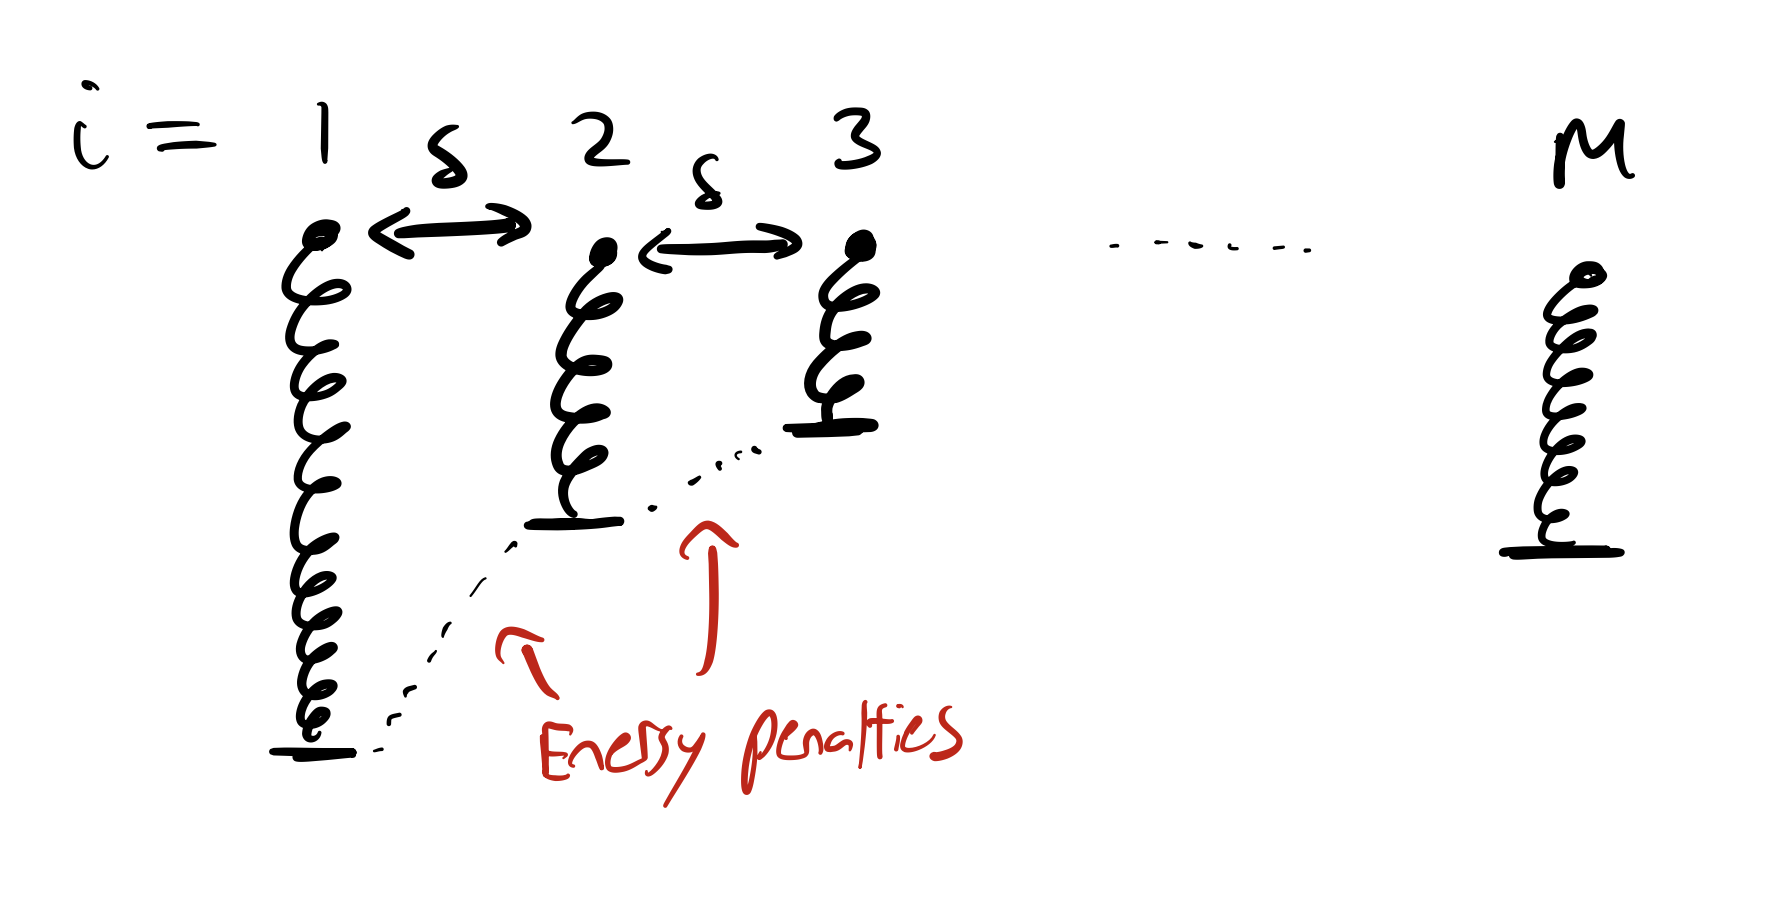 i = 1 δ 2 δ 3 M
Energy penalties